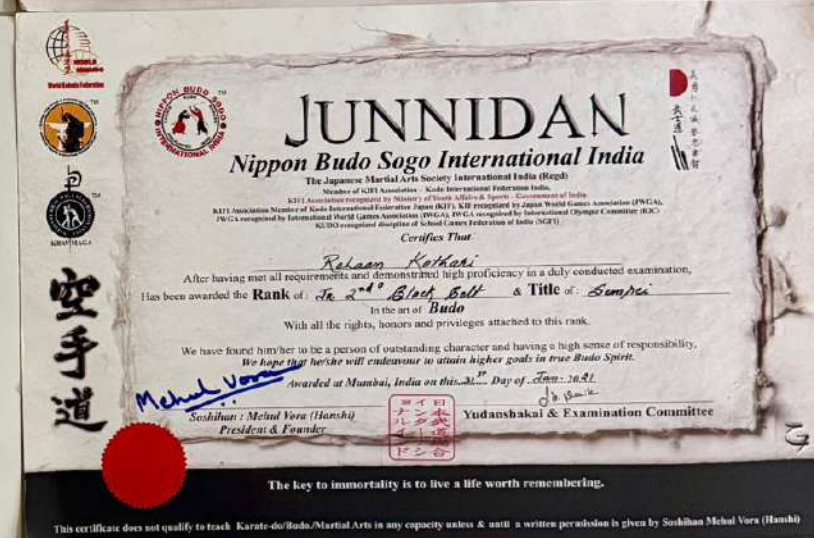 World Kobudo Federation
NIPPON BUDO SOGO
INTERNATIONAL INDIA
TM
JUNNIDAN
Nippon Budo Sogo International India
The Japanese Martial Arts Society International India (Regd)
Member of KIFI Association - Kudo International Federation India,
KIFI Association recognized by Ministry of Youth Affairs & Sports - Government of India
KIFI Association Member of Kudo International Federation Japan (KIF), KIF recognized by Japan World Games Association (JWGA),
JWGA recognized by International World Games Association (IWGA), IWGA recognized by International Olympic Committee (IOC)
KUDO recognized discipline of School Games Federation of India (SGFI)
Certifies That
Rehaan Kothari
After having met all requirements and demonstrated high proficiency in a duly conducted examination,
Has been awarded the Rank of: Jr 2nd° Black Belt & Title of: Sempei
In the art of Budo
With all the rights, honors and privileges attached to this rank.
We have found him/her to be a person of outstanding character and having a high sense of responsibility,
We hope that he/she will endeavour to attain higher goals in true Budo Spirit.
Awarded at Mumbai, India on this..31st.. Day of .Jan-2021
Mehul Vora
Soshihan : Mehul Vora (Hanshi)
President & Founder
Yudanshakai & Examination Committee
TM
TM
KRAV MAGA
空手道
武士道
The key to immortality is to live a life worth remembering.
This certificate does not qualify to teach Karate-do/Budo./Martial Arts in any capacity unless & until a written permission is given by Soshihan Mehul Vora (Hanshi)